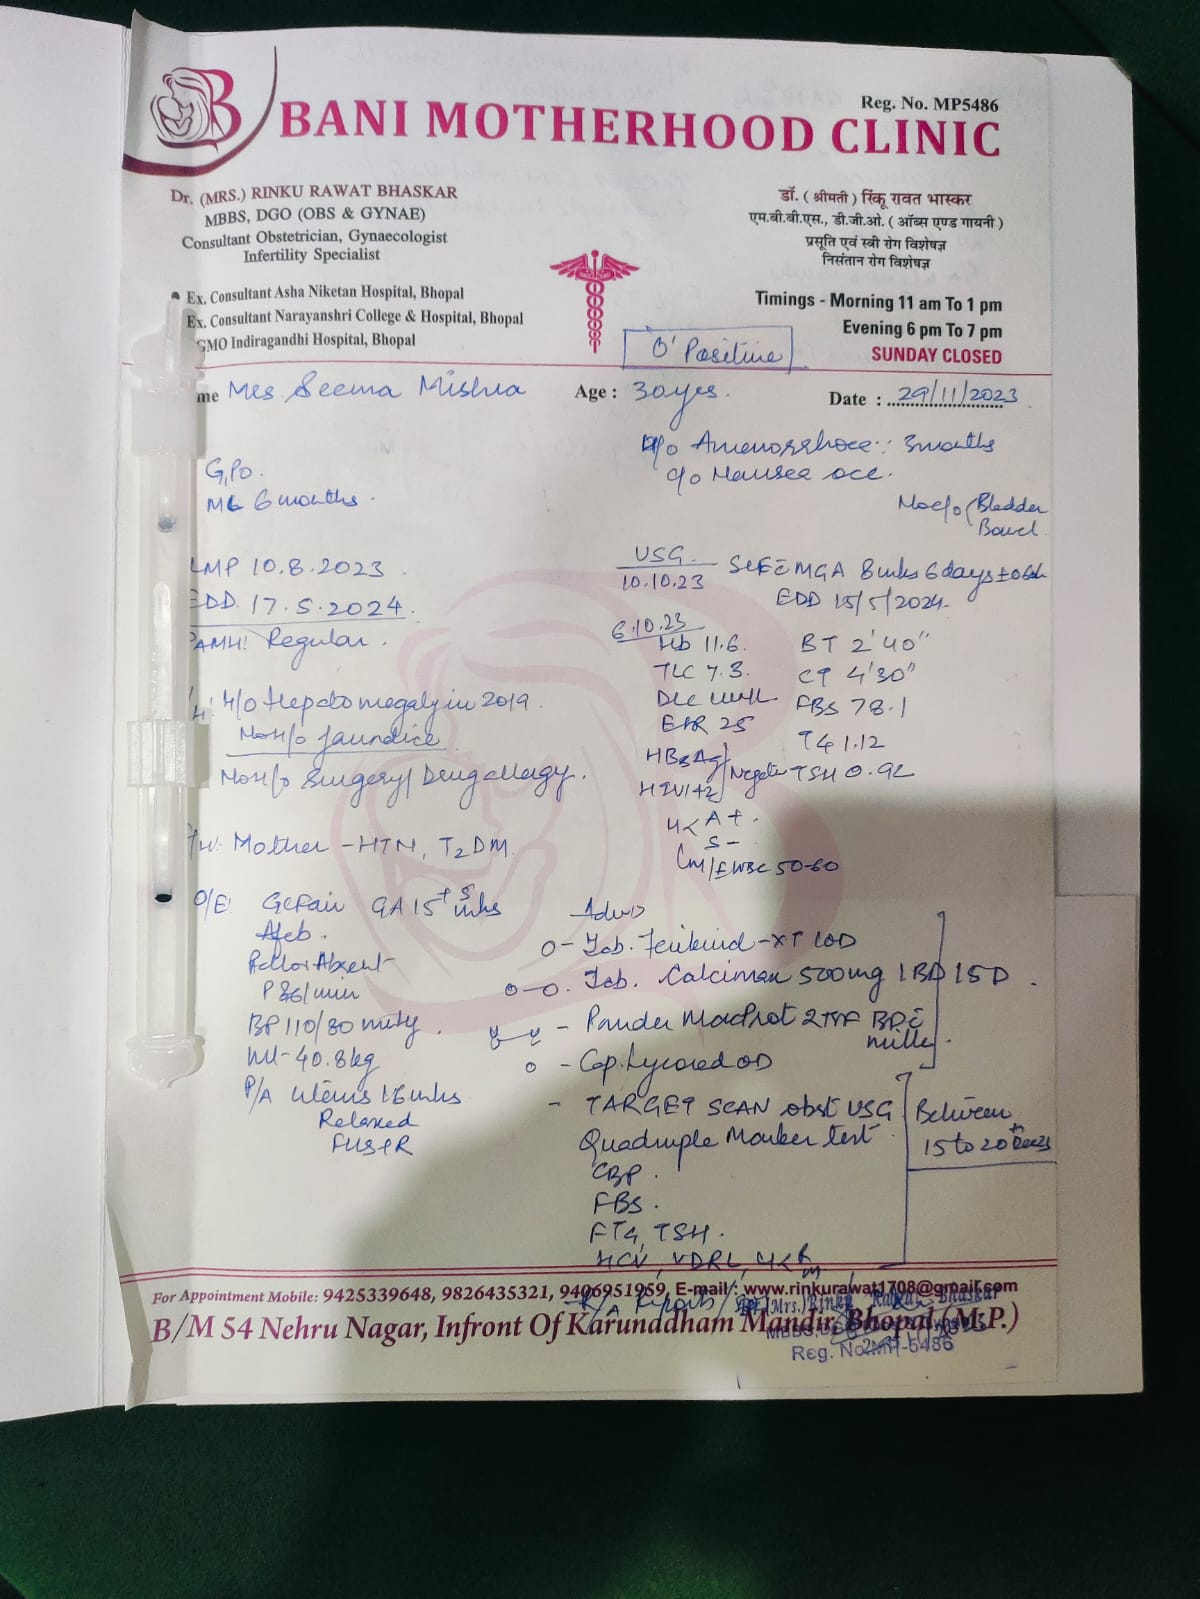 Reg. No. MP5486
BANI MOTHERHOOD CLINIC
Dr. (MRS.) RINKU RAWAT BHASKAR
MBBS, DGO (OBS & GYNAE)
Consultant Obstetrician, Gynaecologist
Infertility Specialist
Ex. Consultant Asha Niketan Hospital, Bhopal
Ex. Consultant Narayanshri College & Hospital, Bhopal
GMO Indiragandhi Hospital, Bhopal
डॉ. ( श्रीमती ) रिंकू रावत भास्कर
एम.बी.बी.एस., डी.जी.ओ. ( ऑब्स एण्ड गायनी )
प्रसूति एवं स्त्री रोग विशेषज्ञ
निसंतान रोग विशेषज्ञ
Timings - Morning 11 am To 1 pm
Evening 6 pm To 7 pm
SUNDAY CLOSED
O' Positive
me Mrs. Seema Mishra Age : 30yrs. Date : 29/11/2023
Amenorrhoea: 3months
c/o Nausea occ.
No c/o (Bladder
Bowel
G1P0.
ML 6 months.
LMP 10.8.2023
EDD 17.5.2024.
PAMH: Regular.
H/o Hepatomegaly in 2019.
No H/o Jaundice
No H/o Surgery/Drug allergy.
Mother - HTN, T2DM.
USG
10.10.23
MGA 8wks 6days
EDD 15/5/2024.
6.10.23
Hb 11.6.
TLC 7.3.
DLC
ESR 25
HBsAg
HIV1+2 / Negative
A+.
S-
50-60
BT 2'40"
CT 4'30"
FBS 78.1
T4 1.12
TSH 0.92
O/E: GCFair GA 15+5 wks
Afeb.
Pallor Absent
P 86/min
BP 110/80
Wt- 40.8kg
P/A Uterus 16wks
Relaxed
FHS+R
Advice
O - Tab. Ferikind-XT 1OD
O-O. Tab. Calcimax 500mg 1 BD 15D.
- Powder MacProt 2TSF BD c
milk.
O - Cap. Lycored OD
- TARGET SCAN obst USG
Quadruple Marker test
CBP.
FBS.
FT4, TSH.
HCV, VDRL,
Between
15 to 20
R/A Reports
For Appointment Mobile: 9425339648, 9826435321, 9406951959, E-mail : www.rinkurawat1708@gmail.com
B/M 54 Nehru Nagar, Infront Of Karunddham Mandir, Bhopal (M.P.)
(Mrs.) Rinku Rawat Bhaskar
Reg. No.MH-5486